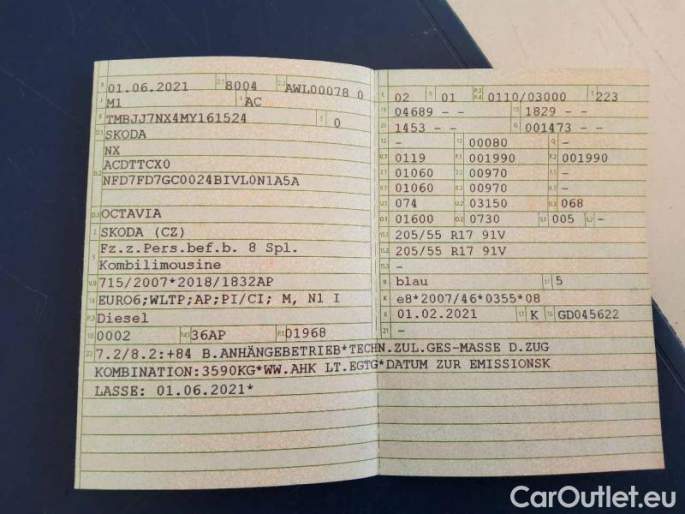 01.06.2021 8004 AWL00078 0
M1 AC
TMBJJ7NX4MY161524 0
SKODA
NX
ACDTTCX0
NFD7FD7GC0024BIVL0N1A5A
OCTAVIA
SKODA (CZ)
Fz.z.Pers.bef.b. 8 Spl.
Kombilimousine
715/2007*2018/1832AP
EURO6;WLTP;AP;PI/CI; M, N1 I
Diesel
0002 36AP 01968
7.2/8.2:+84 B.ANHÄNGEBETRIEB*TECHN.ZUL.GES-MASSE D.ZUG
KOMBINATION:3590KG*WW.AHK LT.EGTG*DATUM ZUR EMISSIONSK
LASSE: 01.06.2021*
02 01 0110/03000 223
04689 - - 1829 - -
1453 - - 001473 - -
- 00080 -
0119 001990 001990
01060 00970 -
01060 00970 -
074 03150 068
01600 0730 005 -
205/55 R17 91V
205/55 R17 91V
-
blau 5
e8*2007/46*0355*08
01.02.2021 K GD045622
-
CarOutlet.eu